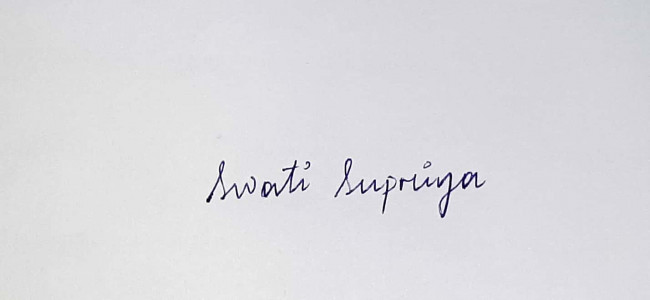 Swati Supriya